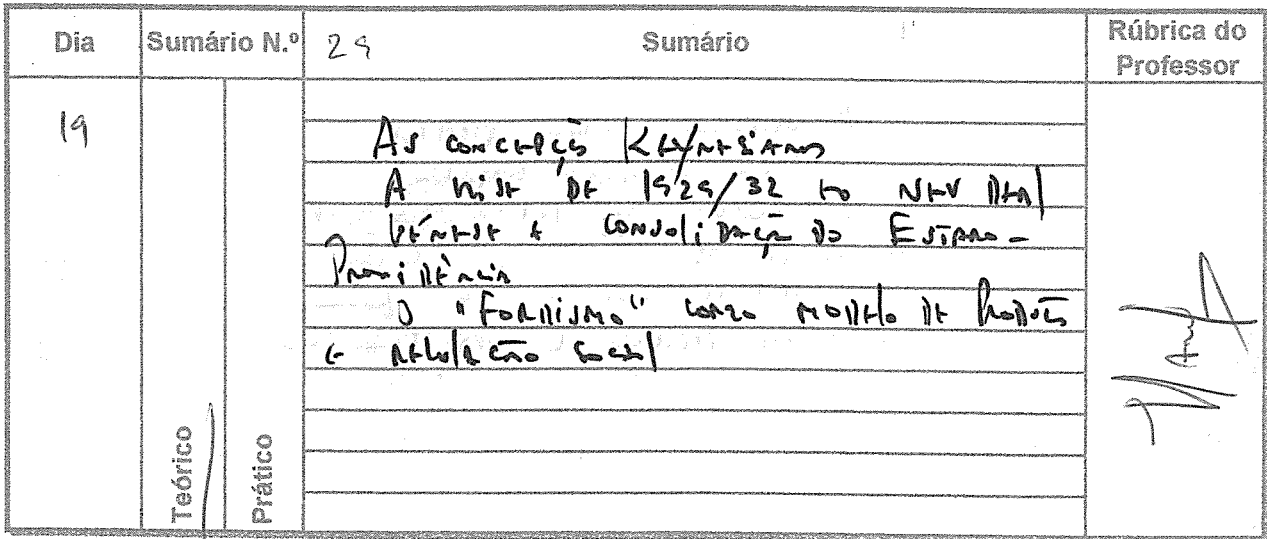 Dia
Sumário N.º 29
Sumário
Rúbrica do
Professor
19
As concepções Keynesianas
A crise de 1929/32 ao New Deal
Génese e consolidação do Estado-
Providência
O "Fordismo" como modelo de Produção
e regulação social
Teórico
Prático